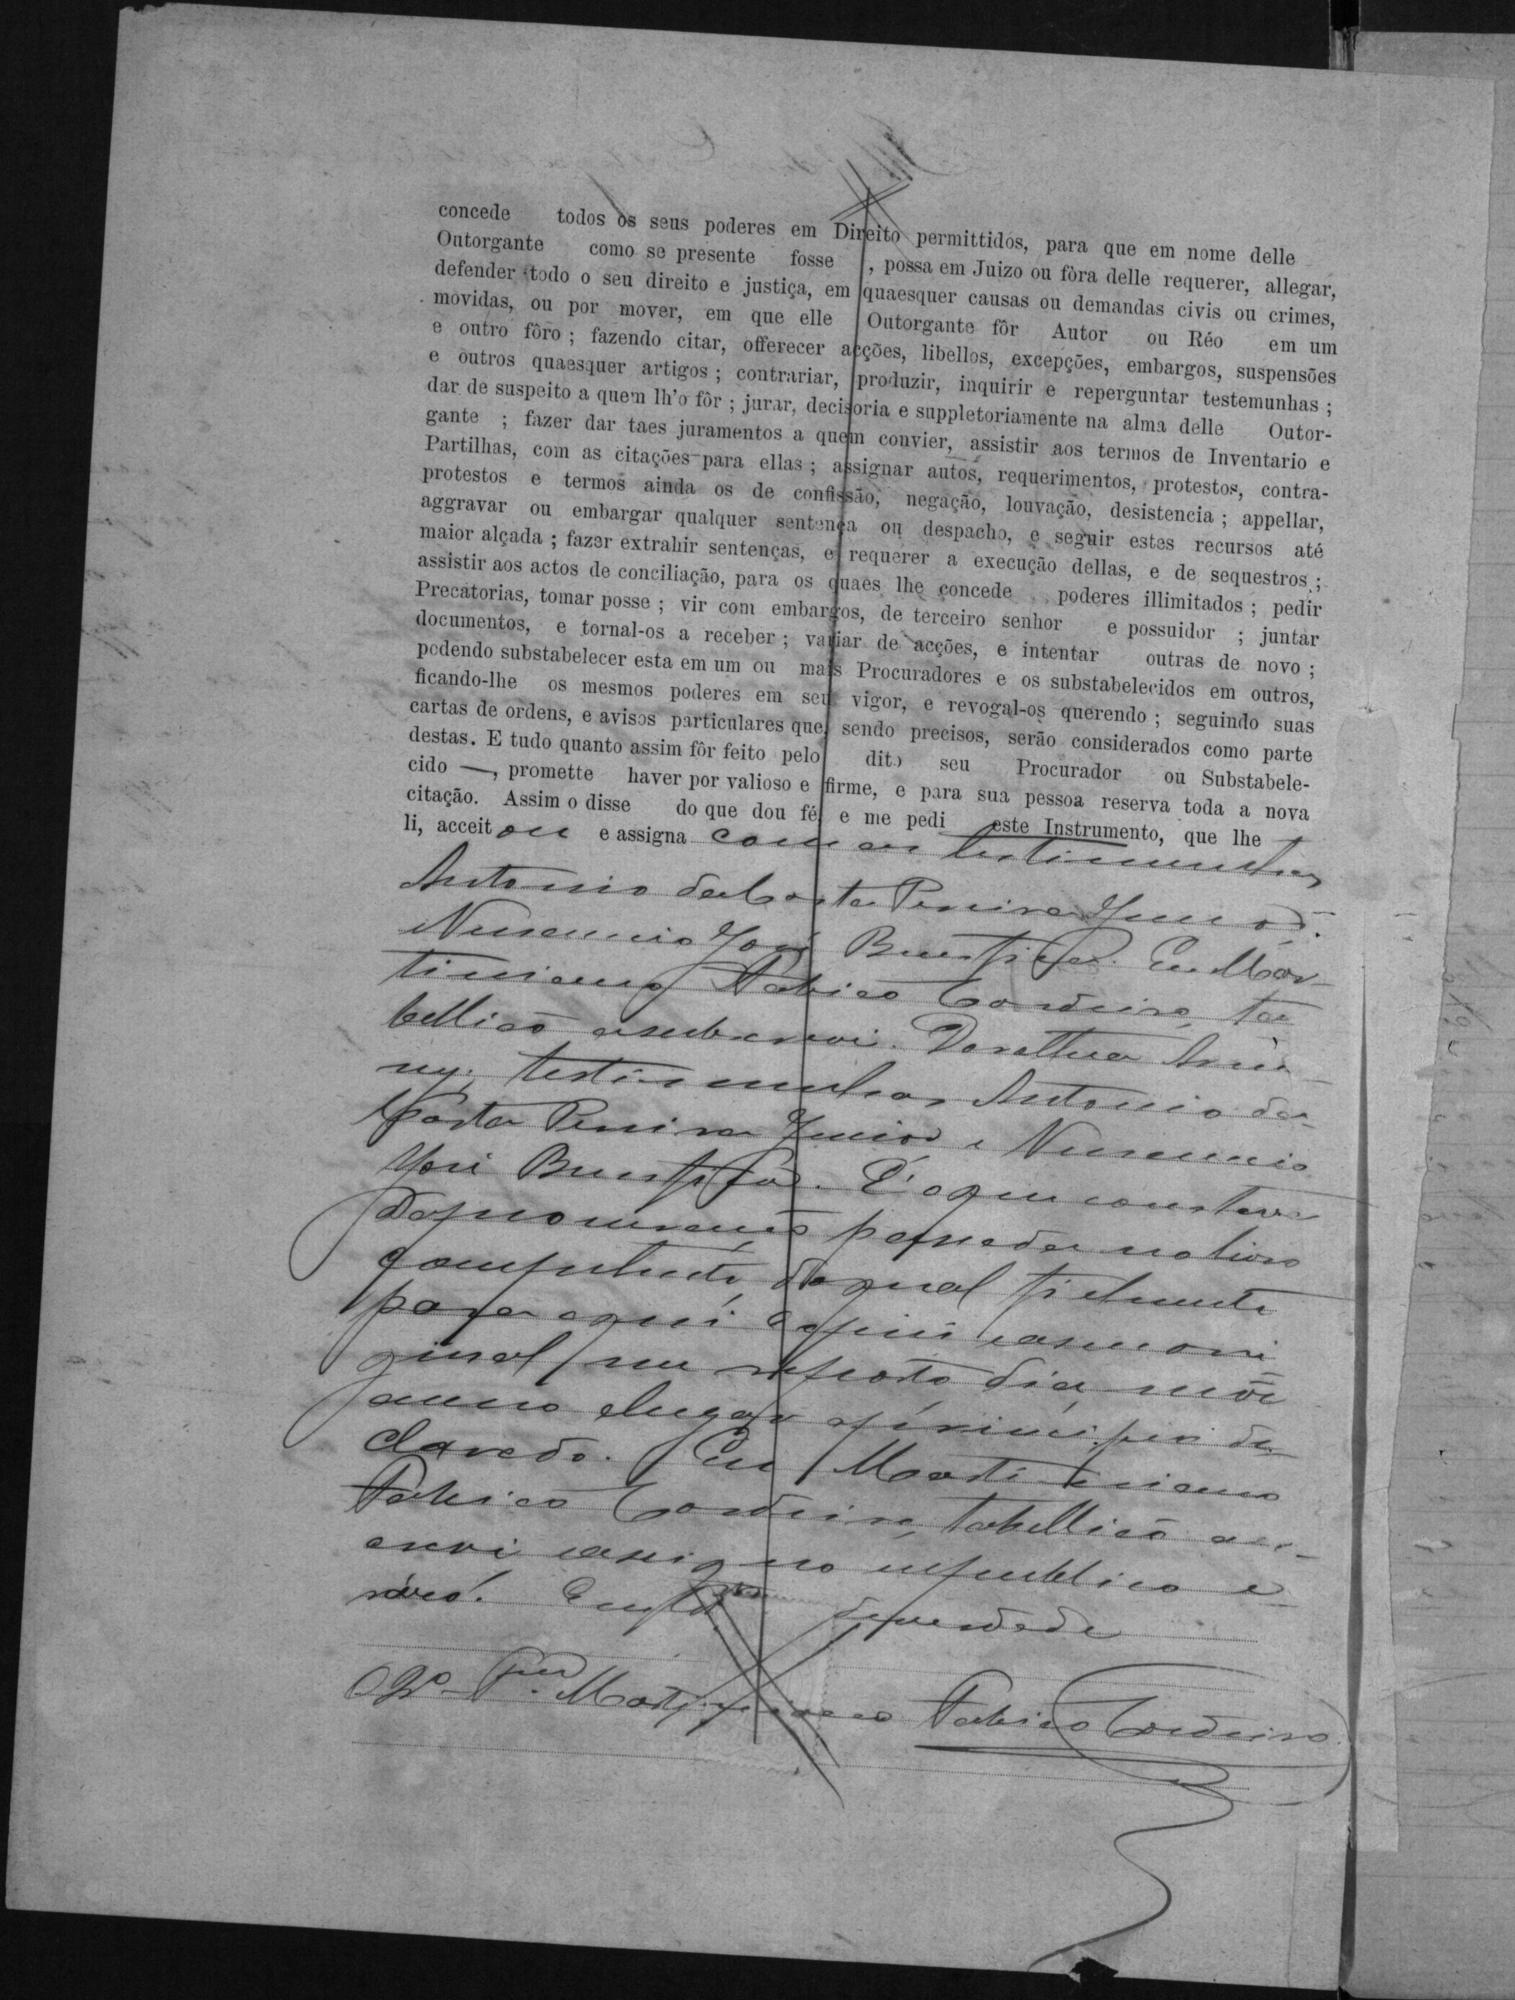 concede todos os seus poderes em Direito permittidos, para que em nome delle
Outorgante como se presente fosse , possa em Juizo ou fòra delle requerer, allegar,
defender todo o seu direito e justiça, em quaesquer causas ou demandas civis ou crimes,
movidas, ou por mover, em que elle Outorgante fôr Autor ou Réo em um
e outro fôro ; fazendo citar, offerecer acções, libellos, excepções, embargos, suspensões
e outros quaesquer artigos ; contrariar, produzir, inquirir e reperguntar testemunhas ;
dar de suspeito a quem lh'o fôr ; jurar, decisoria e suppletoriamente na alma delle Outor-
gante ; fazer dar taes juramentos a quem convier, assistir aos termos de Inventario e
Partilhas, com as citações para ellas ; assignar autos, requerimentos, protestos, contra-
protestos e termos ainda os de confissão, negação, louvação, desistencia ; appellar,
aggravar ou embargar qualquer sentença ou despacho, e seguir estes recursos até
maior alçada ; fazer extrahir sentenças, e requerer a execução dellas, e de sequestros ;
assistir aos actos de conciliação, para os quaes lhe concede poderes illimitados ; pedir
Precatorias, tomar posse ; vir com embargos, de terceiro senhor e possuidor ; juntar
documentos, e tornal-os a receber ; variar de acções, e intentar outras de novo ;
podendo substabelecer esta em um ou mais Procuradores e os substabelecidos em outros,
ficando-lhe os mesmos poderes em seu vigor, e revogal-os querendo ; seguindo suas
cartas de ordens, e avisos particulares que, sendo precisos, serão considerados como parte
destas. E tudo quanto assim fôr feito pelo dito seu Procurador ou Substabele-
cido —, promette haver por valioso e firme, e para sua pessoa reserva toda a nova
citação. Assim o disse do que dou fé, e me pedi este Instrumento, que lhe
li, acceitou e assigna com as testemunhas
Antonio da Costa Pereira Junior.
José Eu Mar-
tiniano Cordeiro, ta-
bellião a subscrevi.
testemunhas Antonio da
Costa Pereira Junior e
José É o que constava
da procuração passada no livro
competente, do qual fielmente
para aqui
ginal, me reporto dia, mez
anno e lugar de-
clarado. Eu Martiniano
Cordeiro, tabellião a es-
crevi e assigno em publico e
raso. de verdade
Martiniano Cordeiro